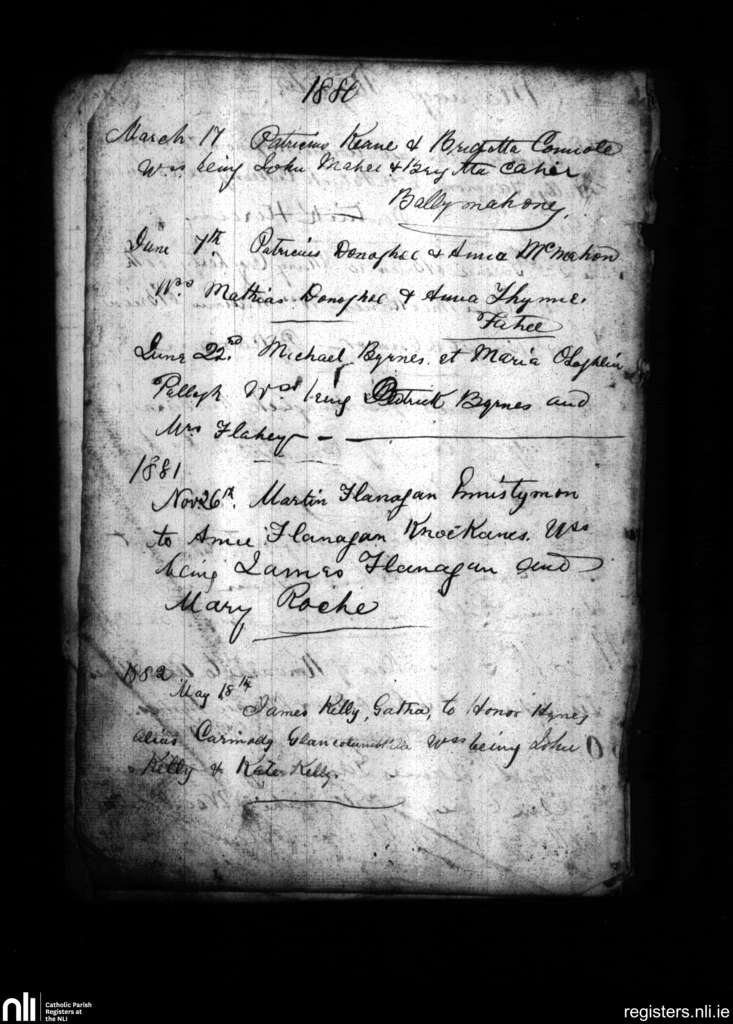 1880
March 17 Patricius Keane & Brigitta Comiole
Wss being John Maher & Brigitta Caher
Ballymahoney.
June 7th Patricius Donoghoe & Anna McMahon
Wss Mathias Donoghoe & Anna Thynne.
Fahee
June 22nd. Michael Byrnes. et Maria OLoghlin
Wss being Patrick Byrnes and
Mrs Flahey
1881
Nov 26th. Martin Flanagan Ennistymon
to Annie Flanagan Knockanes. Wss
being James Flanagan and
Mary Roche
1882
May 18th
James Kelly, Gatha, to Honor Hynes
alias Carmody Glancolumbkille Wss being John
Kelly & Kate Kelly.
nli Catholic Parish
Registers at
the NLI
registers.nli.ie